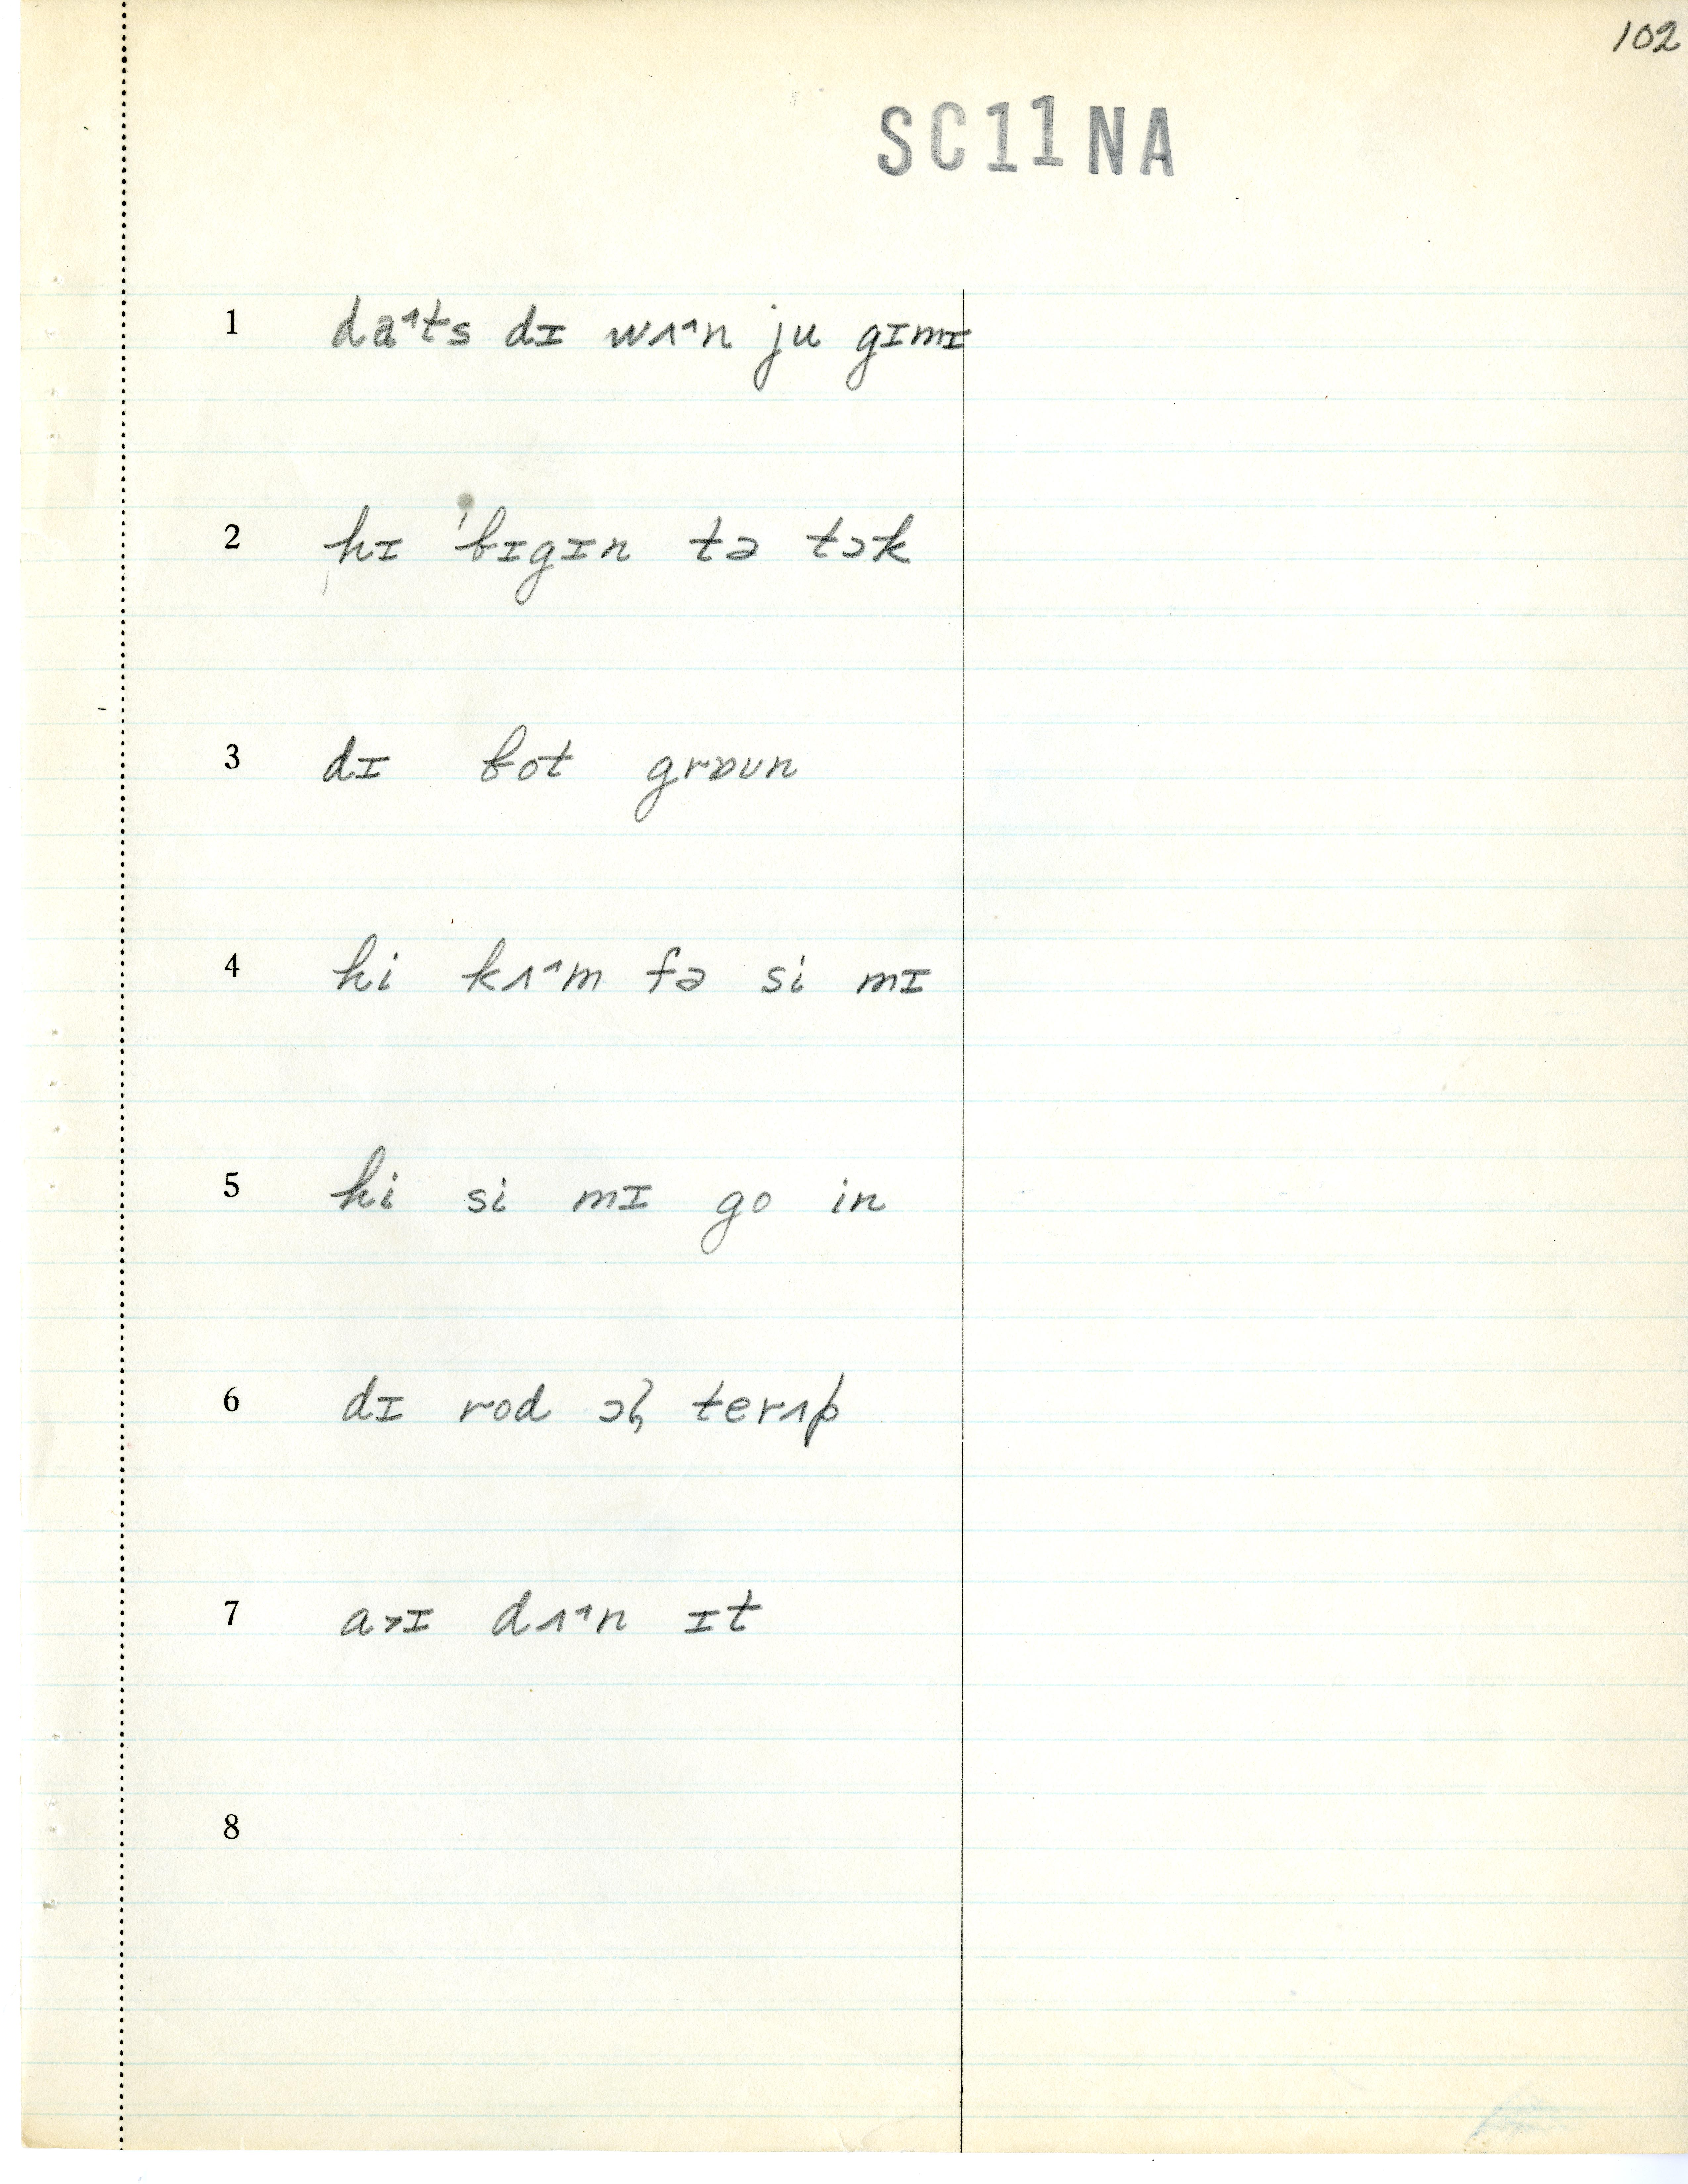 102
SC11NA
1 da˄ts dɪ wʌ˄n ju gɪmɪ
2 hɪ ˈbɪgɪn tə tɔk
3 dɪ bot grɒun
4 hi kʌ˄m fə si mɪ
5 hi si mɪ go in
6 dɪ rod ɔḷ terʌp
7 a˃ɪ dʌ˄n ɪt
8